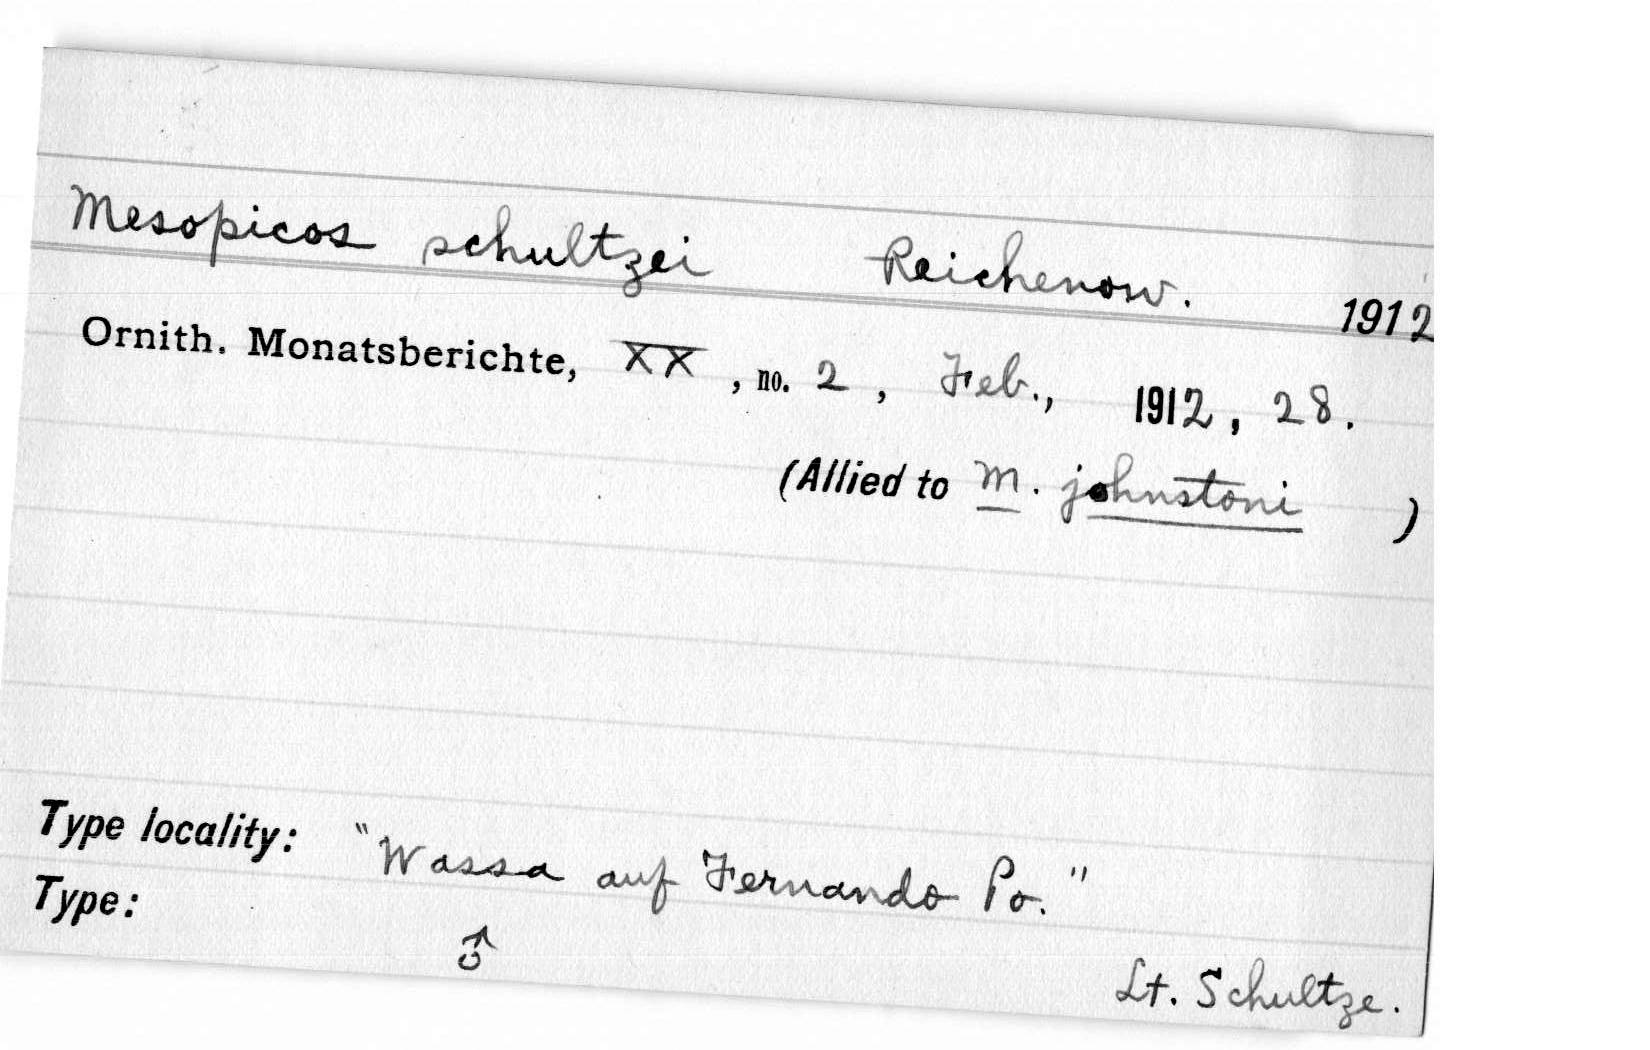 Mesopicos schultzei Reichenow. 1912
Ornith. Monatsberichte, XX, no. 2, Feb., 1912, 28.
(Allied to M. johnstoni )
Type locality: "Wassa auf Fernando Po."
Type: ♂ Lt. Schultze.